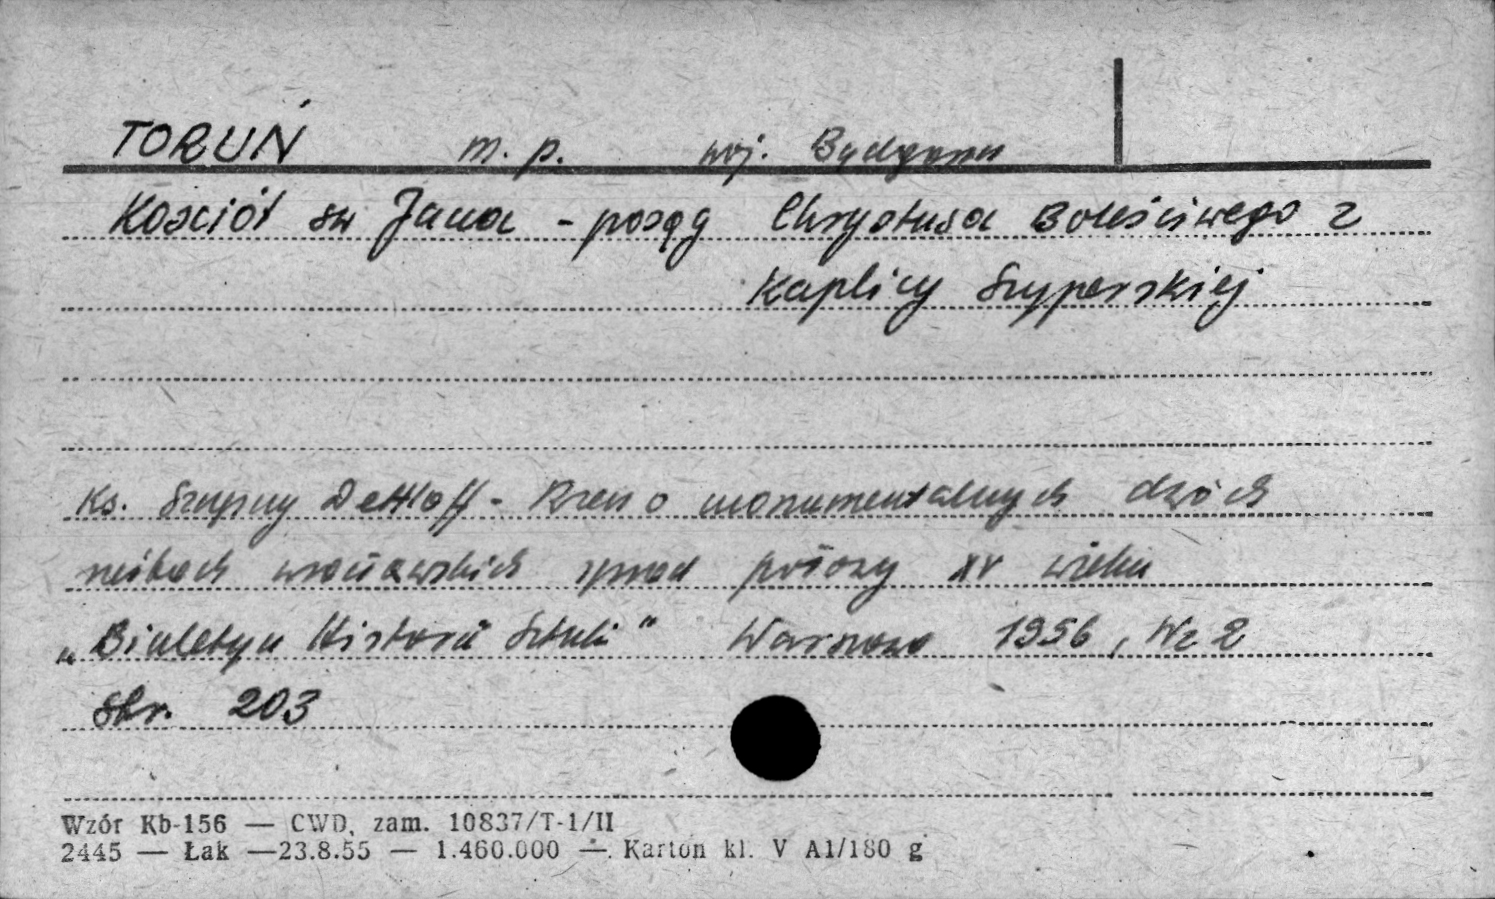 TORUŃ m. p. woj. Bydgoszcz
Kościół św Jana - posąg Chrystusa Boleściwego z
Kaplicy Szyperskiej
Ks. Szczęsny Dettloff - Rzecz o monumentalnych dziełach
wrocławskich sprzed połowy XV wieku
„Biuletyn Historii Sztuki" Warszawa 1956, Nr 2
Str. 203
Wzór Kb-156 — CWD, zam. 10837/T-1/II
2445 — Łak —23.8.55 — 1.460.000 — Karton kl. V A1/180 g